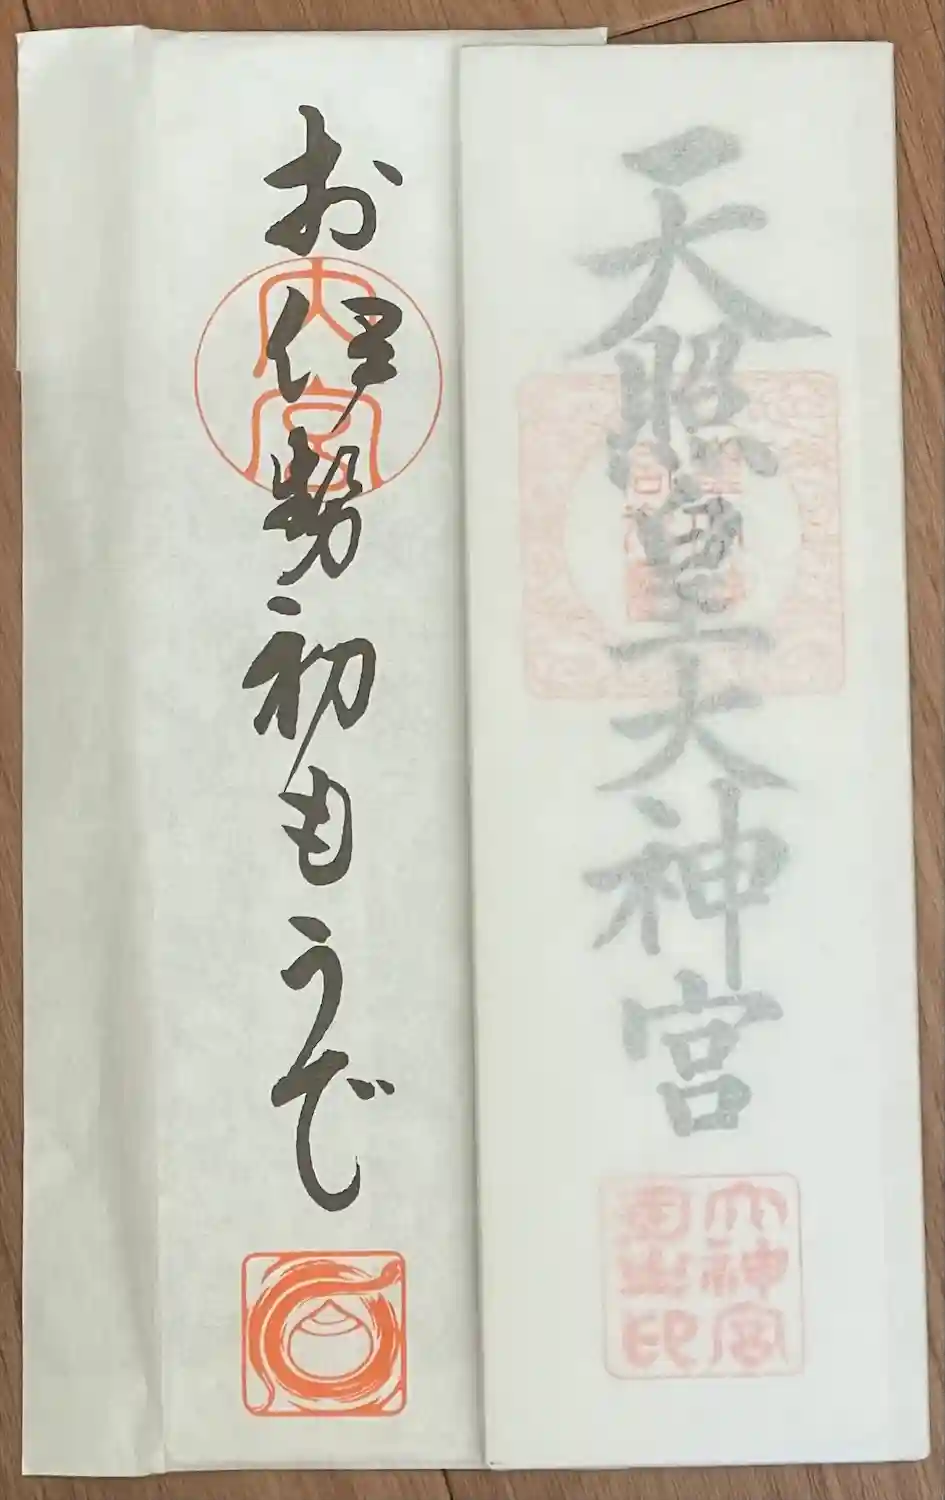 天照皇大神宮
大神宮
司之印
お伊勢初もうで
内宮